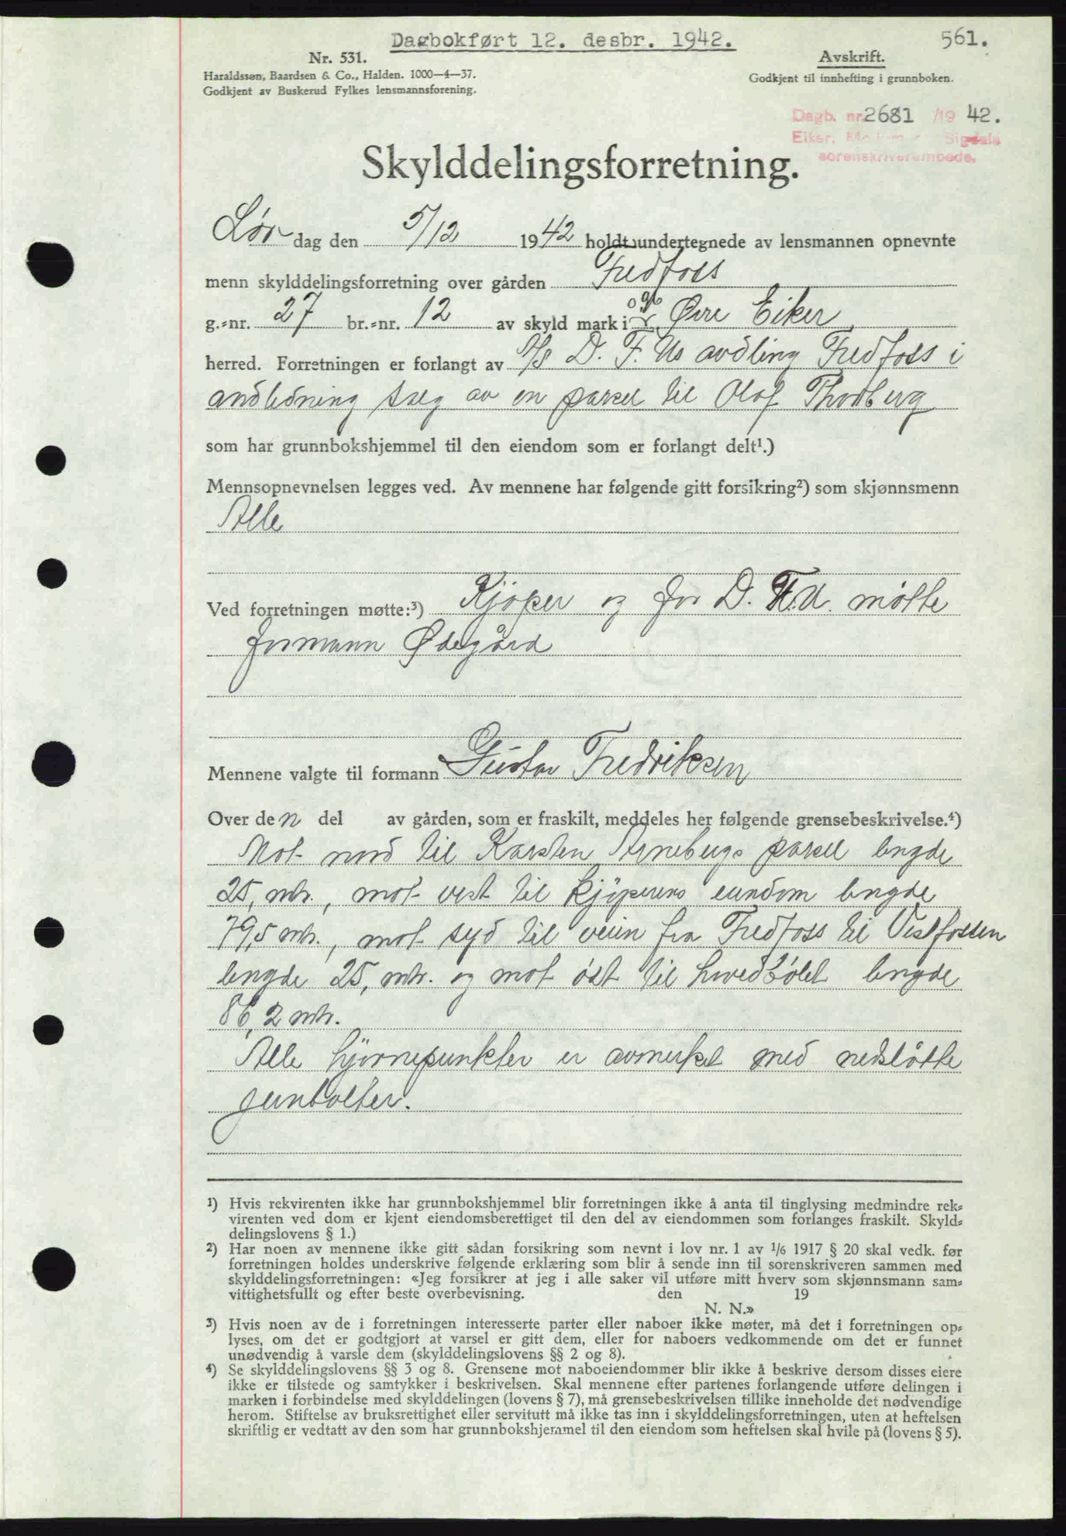 Dagbokført 12. desbr. 1942.
561.
Nr. 531.
Haraldssøn, Baardsen & Co., Halden. 1000—4—37.
Godkjent av Buskerud Fylkes lensmannsforening.
Avskrift.
Godkjent til innhefting i grunnboken.
Dagb. nr. 2681 /19 42.
Eiker, Modum og Sigdals
sorenskriverembede.
Skylddelingsforretning.
Lør dag den 5/12 1942 holdt undertegnede av lensmannen opnevnte
menn skylddelingsforretning over gården Fredfoss
g.-nr. 27 br.-nr. 12 av skyld mark i Øvre Eiker
herred. Forretningen er forlangt av A/S D. F. Us avdling Fredfoss i
andledning salg av en parsel til Olaf Thodberg
som har grunnbokshjemmel til den eiendom som er forlangt delt¹.)
Mennsopnevnelsen legges ved. Av mennene har følgende gitt forsikring²) som skjønnsmenn
Alle
Ved forretningen møtte:³) Kjøper og for D. F. U. møtte
formann Ødegård
Mennene valgte til formann Gustav Fredriksen
Over den del av gården, som er fraskilt, meddeles her følgende grensebeskrivelse.⁴)
Mot nord til Karsten Arnebergs parsel lengde
25, mtr., mot vest til kjøperens eiendom lengde
79,5 mtr., mot syd til veien fra Fredfoss til Vestfossen
lengde 25, mtr. og mot øst til hovedbølet lengde
86,2 mtr.
Alle hjørnepunkter er avmerket med nedsløtte
jernbolter.
¹) Hvis rekvirenten ikke har grunnbokshjemmel blir forretningen ikke å anta til tinglysing medmindre rek-
virenten ved dom er kjent eiendomsberettiget til den del av eiendommen som forlanges fraskilt. Skyld-
delingslovens § 1.)
²) Har noen av mennene ikke gitt sådan forsikring som nevnt i lov nr. 1 av 1/6 1917 § 20 skal vedk. før
forretningen holdes underskrive følgende erklæring som blir å sende inn til sorenskriveren sammen med
skylddelingsforretningen: «Jeg forsikrer at jeg i alle saker vil utføre mitt hverv som skjønnsmann sam-
vittighetsfullt og efter beste overbevisning. den 19
N. N.»
³) Hvis noen av de i forretningen interesserte parter eller naboer ikke møter, må det i forretningen op-
lyses, om det er godtgjort at varsel er gitt dem, eller for naboers vedkommende om det er funnet
unødvendig å varsle dem (skylddelingslovens §§ 2 og 8).
⁴) Se skylddelingslovens §§ 3 og 8. Grensene mot naboeiendommer blir ikke å beskrive dersom disses eiere
ikke er tilstede og samtykker i beskrivelsen. Skal mennene efter partenes forlangende utføre delingen i
marken i forbindelse med skylddelingen (lovens § 7), må grensebeskrivelsen tillike inneholde det nødvendige
herom. Stiftelse av bruksrettighet eller servitutt må ikke tas inn i skylddelingsforretningen, uten at heftelsen
skriftlig er vedtatt av den som har grunnbokshjemmel til den eiendom som heftelsen skal hvile på (lovens § 5).